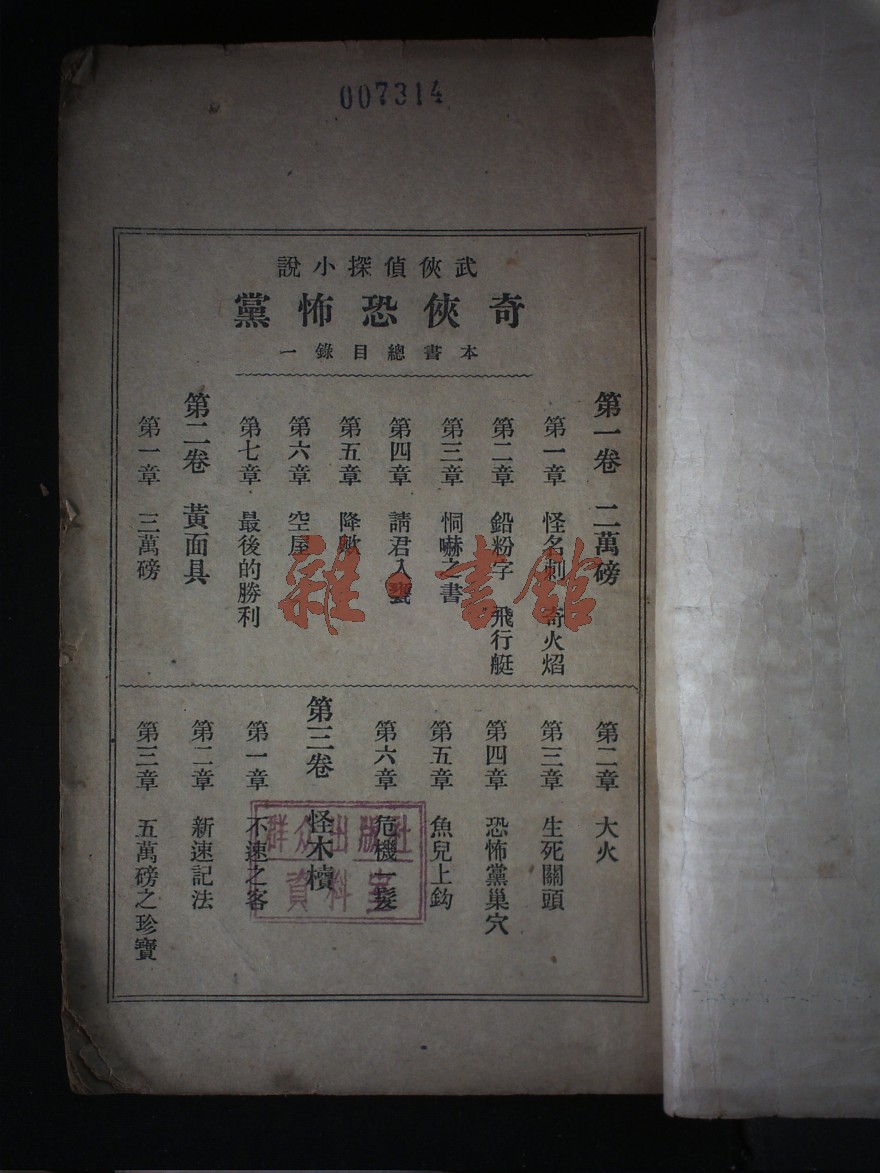 007314
武俠偵探小說
奇俠恐怖黨
本書總目錄一
第一卷 二萬磅
第一章 怪名刺 奇火焰
第二章 鉛粉字 飛行艇
第三章 恫嚇之書
第四章 請君入甕
第五章 降敵
第六章 空屋
第七章 最後的勝利
第二卷 黃面具
第一章 三萬磅
第二章 大火
第三章 生死關頭
第四章 恐怖黨巢穴
第五章 魚兒上鈎
第六章 危機一髮
第三卷 怪木櫝
第一章 不速之客
第二章 新速記法
第三章 五萬磅之珍寶
群众出版社
資料室
雜·書館